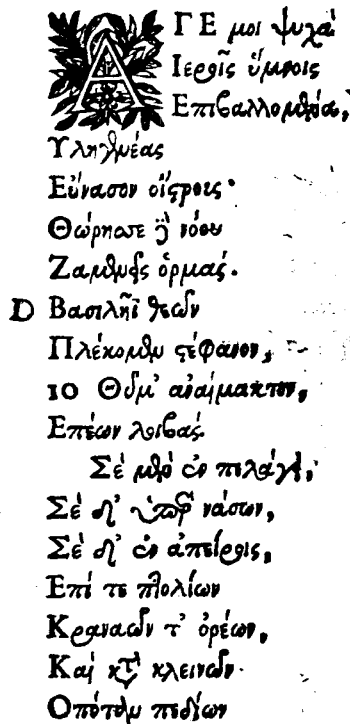 ΑΓΕ μοι ψυχὰ
Ιεροῖς ὕμνοις
Επιβαλλομένα,
Υληγενέας
Εὔνασον οἴστρους·
Θώρησσε δὲ νόου
Ζαμενεῖς ὁρμάς.
D Βασιλῆϊ θεῶν
Πλέκομεν στέφανον,
10 Θῦμ' ἀναίμακτον,
Επέων λοιβάς.
Σὲ μὲν ἐν πελάγει,
Σὲ δ' ὑπὲρ νάσων,
Σὲ δ' ἐν ἀπείροις,
Επί τε πτολίων
Κραναῶν τ' ὀρέων,
Καὶ κτ̀ κλεινῶν·
Οπόταν πεδίων